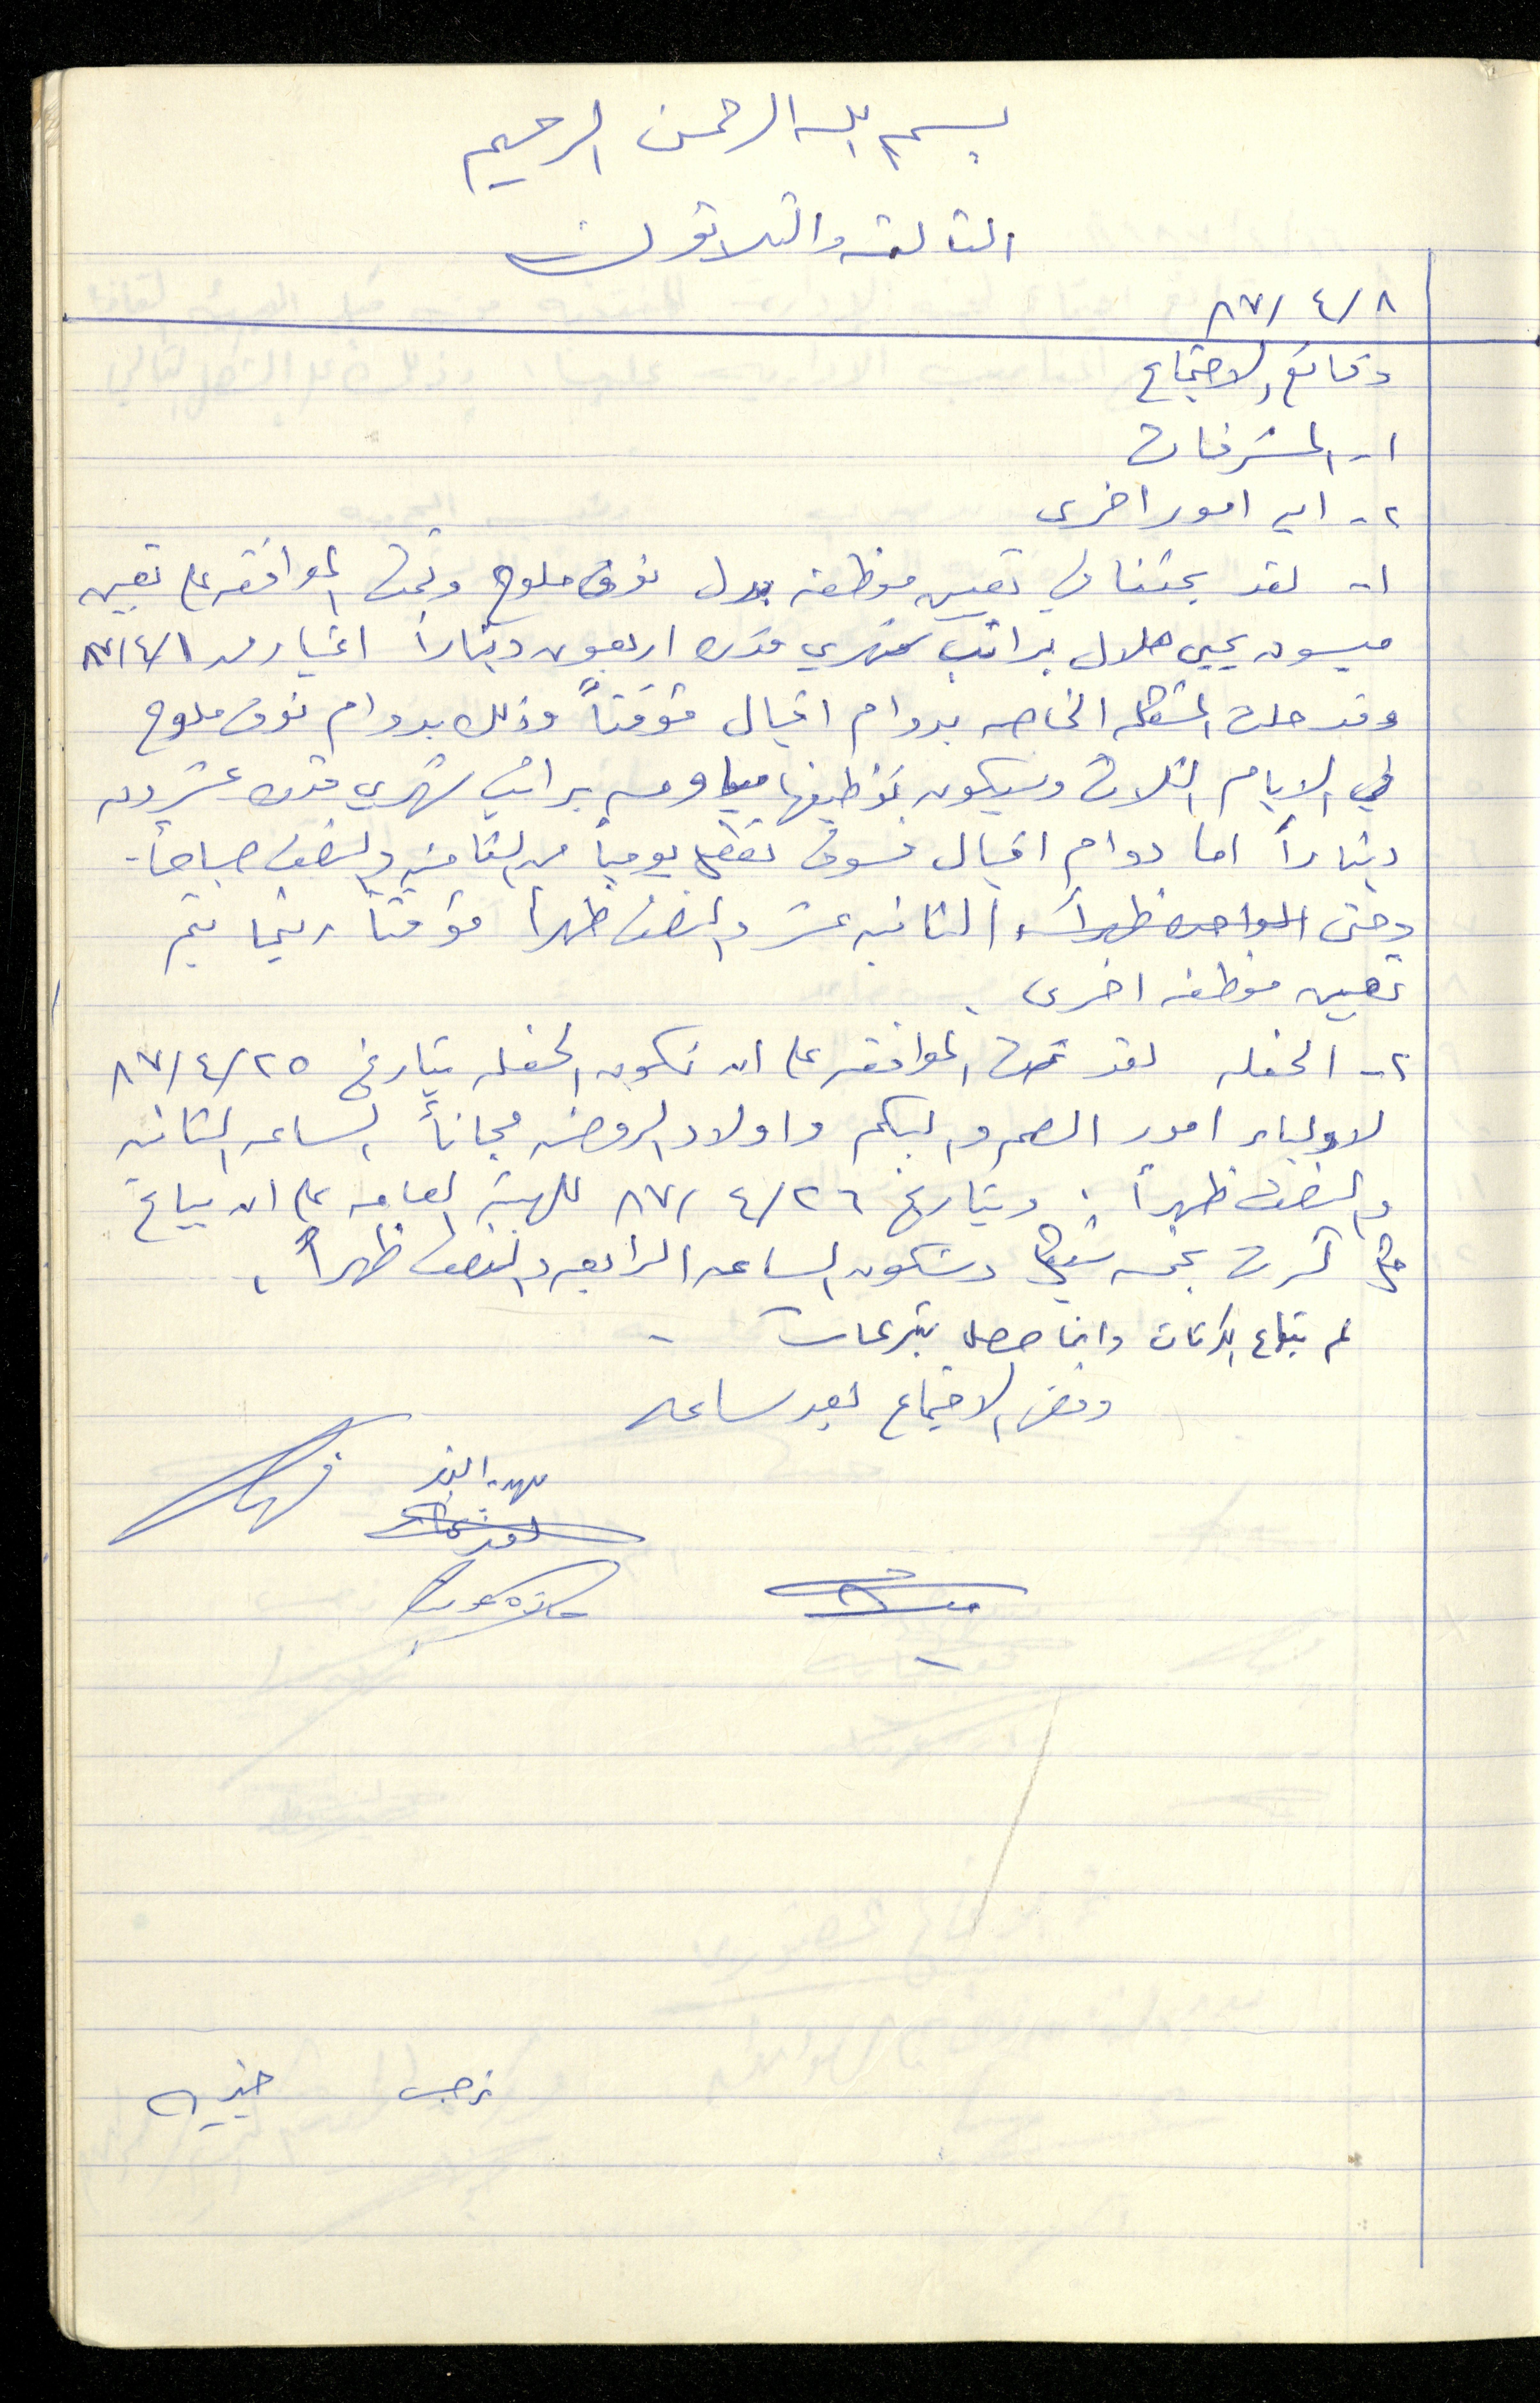 بسم الله الرحمن الرحيم
الثالثه والثلاثون
٨٧/٤/٨
وقائع الاجتماع
١- المشرفات
٢- اي امور اخرى
١- لقد بحثنا في تعيين موظفه بدل نوف ملوح وتمت الموافقه على تعيين
ميسون يحيى هلال براتب شهري قدره اربعون ديناراً اعتبار من ٨٧/٤/١
وقد حلت المشكله الخاصه بدوام اقبال مؤقتاً وذلك بدوام نوف ملوح
في الايام الثلاث وسيكون توظيفها مياومه براتب شهري قدره عشرون
ديناراً اما دوام اقبال فسوف تعمل يومياً من الثامنه والنصف صباحاً-
وحتى الواحده ظهراً الثانيه عشر والنصف ظهراً مؤقتاً ريثما يتم
تعيين موظفه اخرى.
٢- الحفله لقد تمت الموافقه على ان تكون الحفله بتاريخ ٨٧/٤/٢٥
لاولياء امور الصم والبكم واولاد الروضه مجاناً الساعه الثانيه
والنصف ظهراً. وبتاريخ ٨٧/٤/٢٦ للهيئه العامه على ان يباع
كل كرت بخمسه شيكل وستكون الساعه الرابعه والنصف ظهراً.
لم يتباع الكرتات وانما حصل تبرعات -
وفض الاجتماع بعد ساعه